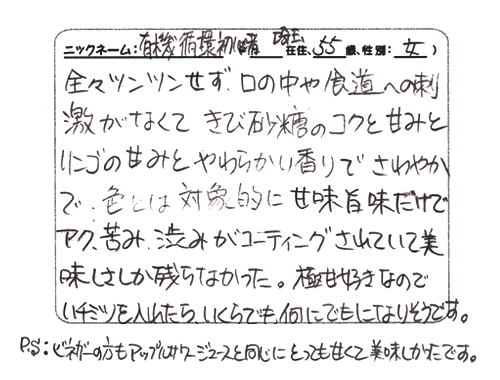 ニックネーム：有機循環初心者 埼玉 在住、55 歳、性別： 女 ）
全々ツンツンせず、口の中や食道への刺
激がなくて きび砂糖のコクと甘みと
リンゴの甘みと やわらかい香りで さわやか
で、色とは 対象的に 甘味旨味だけで
アク、苦み、渋みがコーティングされていて美
味しさしか残らなかった。極甘好きなので
ハチミツを入れたら、いくらでも、何にでもになりそうです。
P.S：ビネガーの方もアップルサワージュースと同じにとっても甘くて美味しかったです。